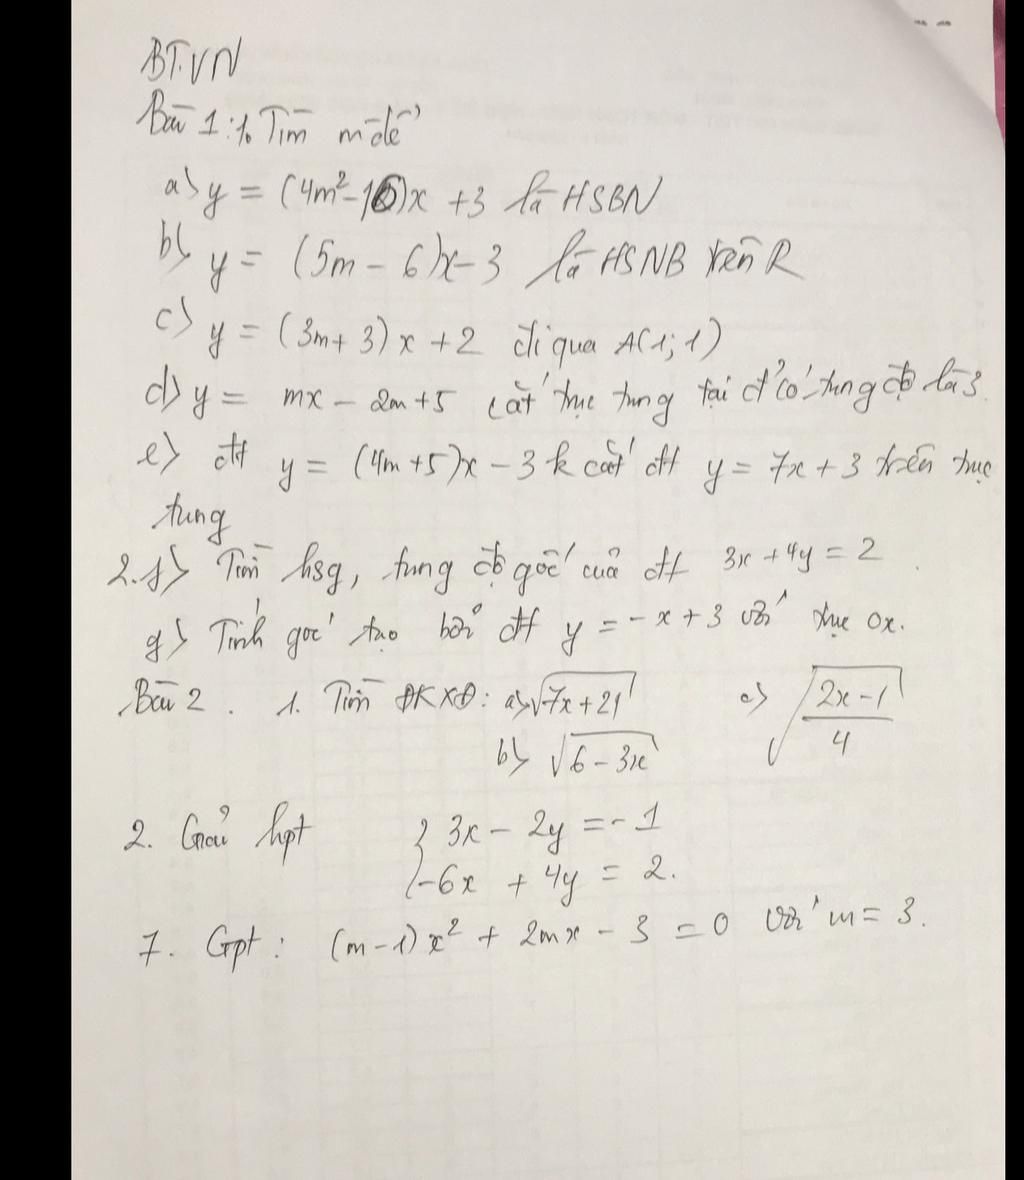 BTVN
Bài 1: 1. Tìm m để
a) y = (4m² - 16)x + 3 là HSBN
b) y = (5m - 6)x - 3 là HSNB trên R
c) y = (3m + 3)x + 2 đi qua A(1; 1)
d) y = mx - 2m + 5 cắt trục tung tại đ' có tung độ là 3.
e) đt y = (4m + 5)x - 3 k cắt đt y = 7x + 3 trên trục
tung
2. f) Tìm hsg, tung độ gốc của đt 3x + 4y = 2.
g) Tính góc tạo bởi đt y = -x + 3 với trục ox.
Bài 2. 1. Tìm ĐKXĐ: a) √(7x + 21) c) √((2x - 1)/4)
b) √(6 - 3x)
2. Giải hpt { 3x - 2y = -1
-6x + 4y = 2.
7. Gpt: (m - 1)x² + 2mx - 3 = 0 với m = 3.